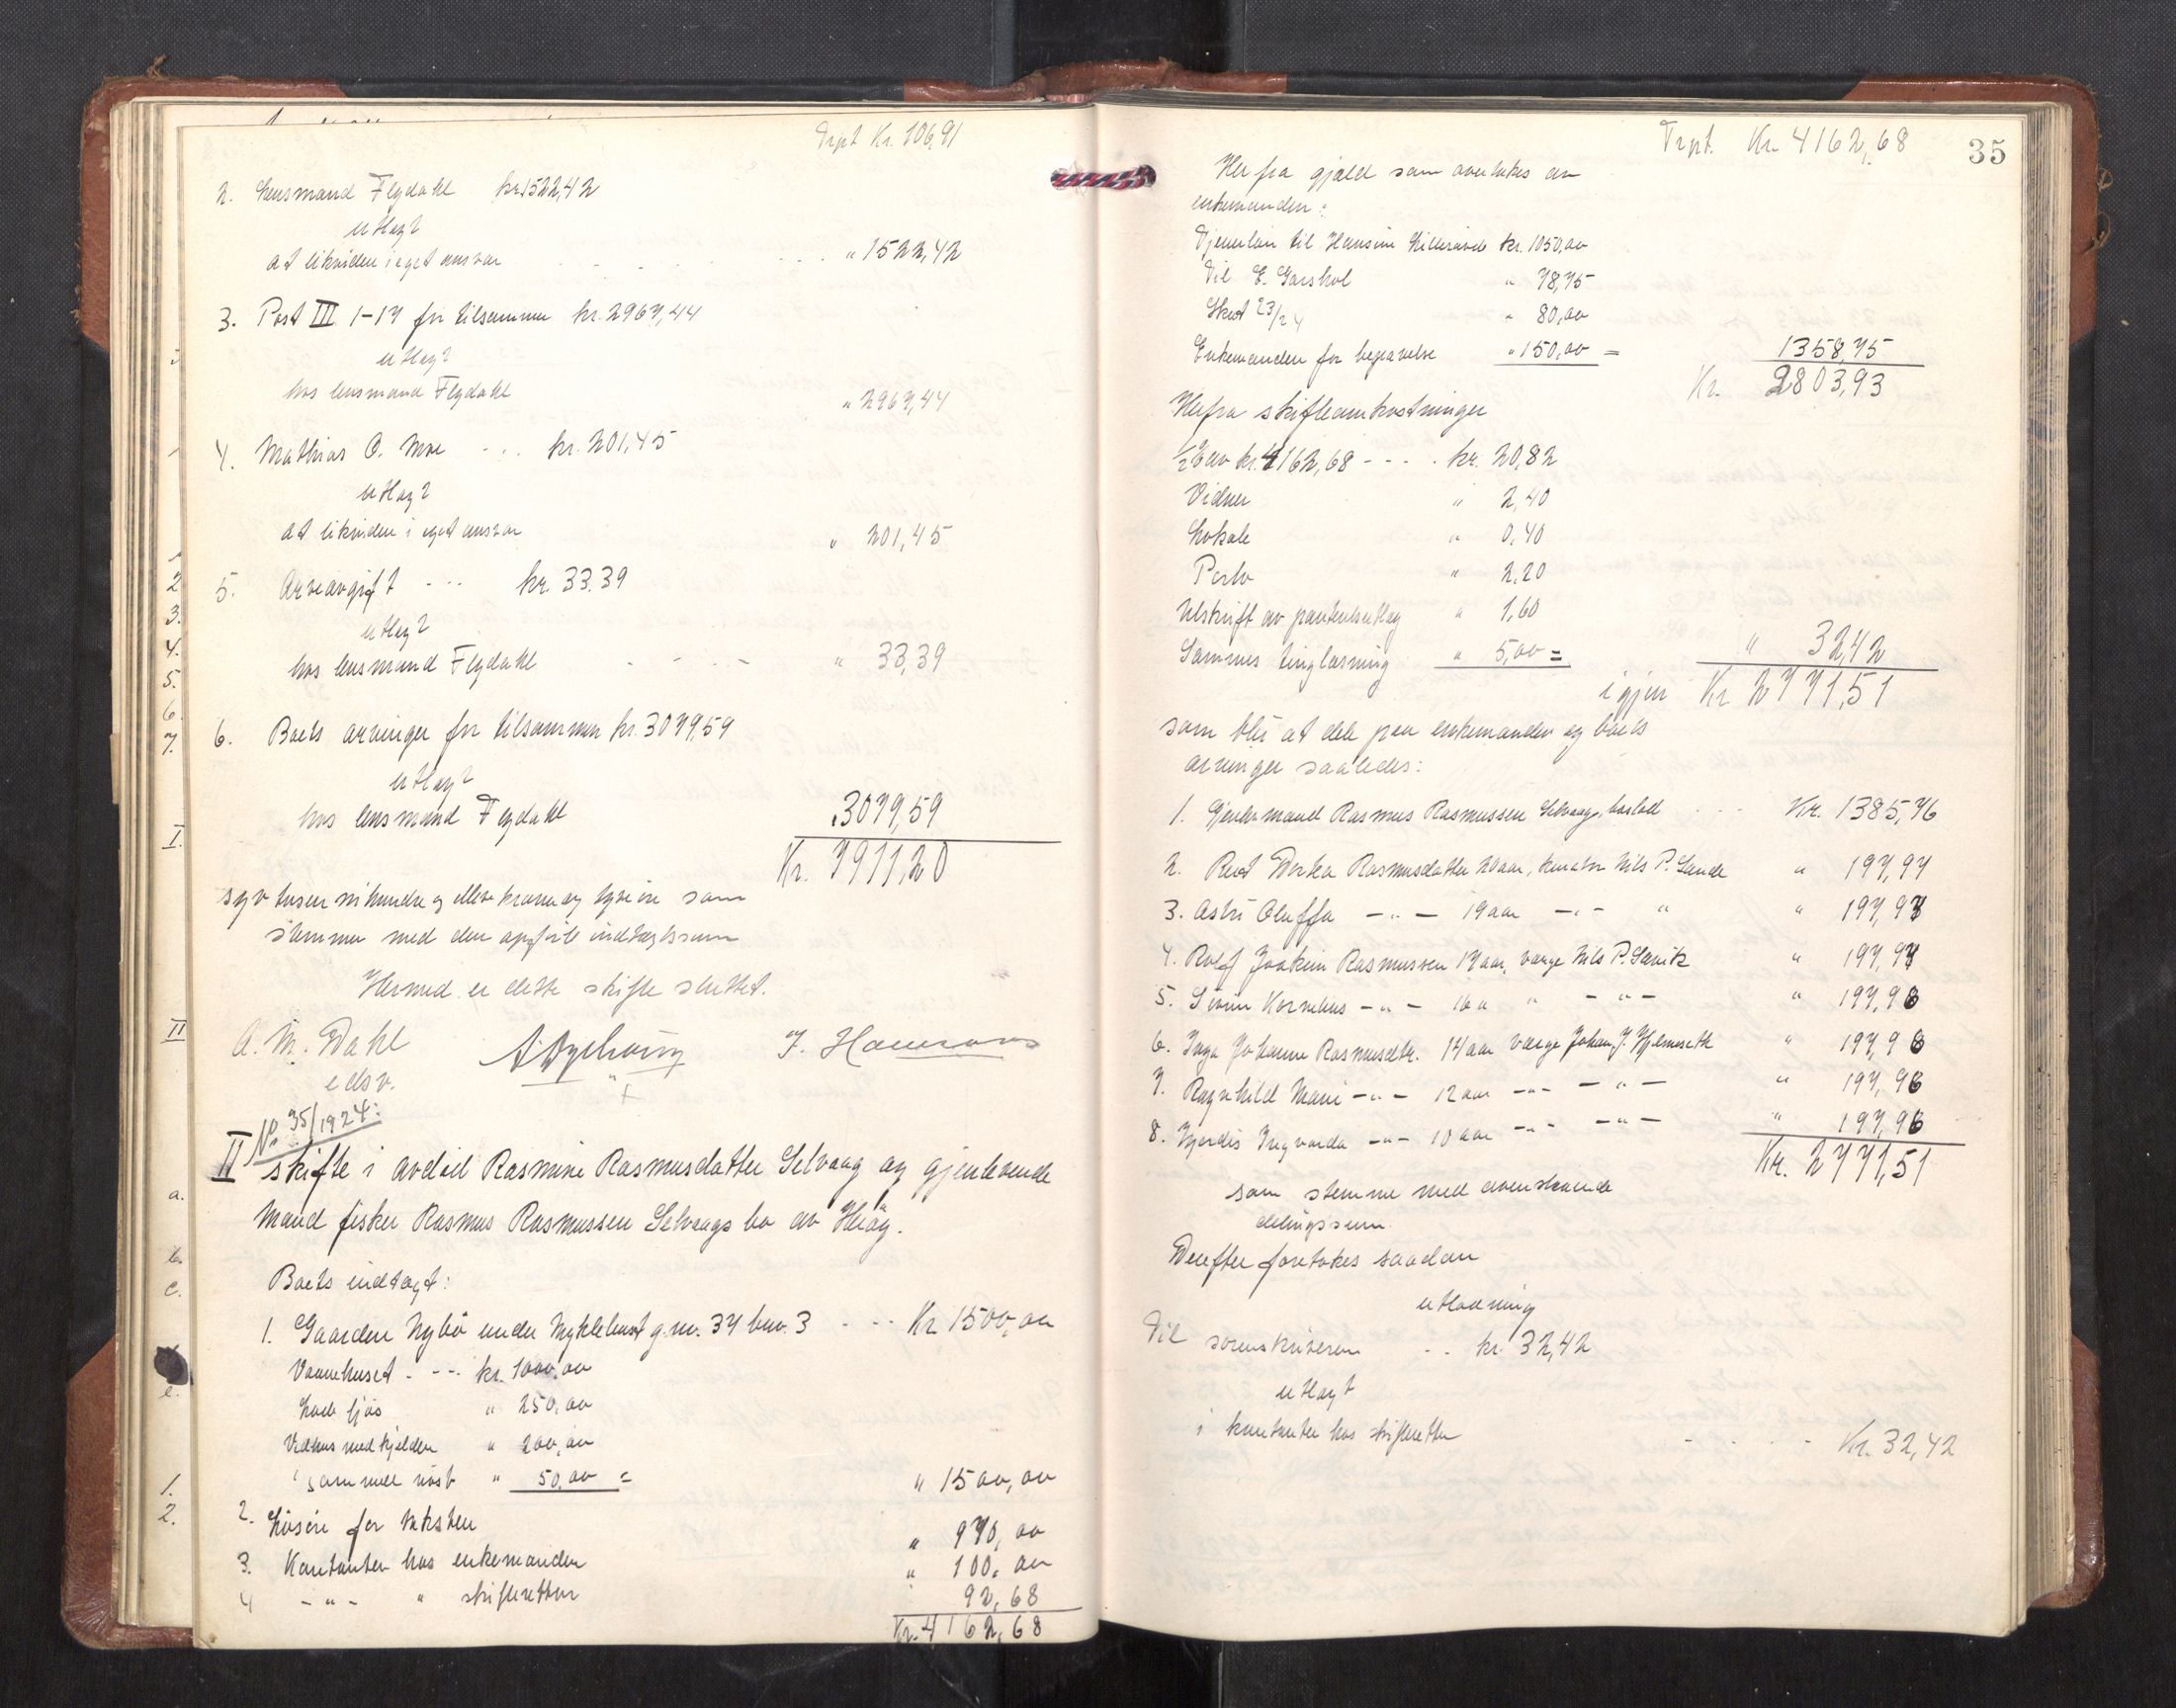 Trpt Kr. 106,91
2. Lensmand Flydahl kr. 1522,42
utlagt
at likvidere i eget ansvar " 1522,42
3. Post III 1-17 for tilsammen kr. 2967,44
utlagt
hos lensmand Flydahl " 2967,44
4. Mathias O. Moe - - - kr. 201,45
utlagt
at likvidere i eget ansvar " 201,45
5. Arveavgift - - - kr. 33.39
utlagt
hos lensmand Flydahl - - - - " 33,39
6. Boets arvinger for tilsammen kr. 3079,59
utlagt
hos lensmand Flydahl " 3079,59
Kr. 7911,20
syv tusen nihundre og elleve kroner og tyve øre som
stemmer med den opførte indtægtssum
Hermed er dette skifte sluttet.
A. M. Dahl
edsv.
No 35/1924:
II skifte i avdød Rasmine Rasmusdatter Selvaag og gjenlevende
mand fisker Rasmus Rasmussen Selvaags bo av Herøy.
Boets indtægt:
1. Gaarden Nybø under Myklebust g.nr. 37 bnr. 3 - - - Kr 1500,00
Vaanehuset - - - kr. 1000,00
Lade fjøs " 250,00
Vedhus med kjelder " 200,00
gammelt nøst " 50,00 = " 1500,00
2. Løsøre for taksten " 970,00
3. Kontanter hos enkemanden " 100,00
4 - " - " skifteretten 92,68
Kr. 4162,68
35
Trpt. Kr 4162,68
Her fra gjæld som overtakes av
enkemanden:
Tjenerløn til Hansine kr. 1050,00
Til E. Garshol " 78,75
Skat 23/24 " 80,00
Enkemanden for begravelse " 150,00 = 1358,75
Kr. 2803,93
Herfra skifteomkostninger
1/2 % av kr. 4162,68 - - - kr. 20,82
Vidner " 2,40
Lokale " 0,40
Porto " 2,20
Utskrift av panteutlæg " 1,60
Sammes tinglæsning " 5,00 = " 32,42
igjen Kr 2771,51
som blir at dele paa enkemanden og boets
arvinger saaledes:
1. Gjenlev. mand Rasmus Rasmussen Selvaag, boslod - - - Kr. 1385,76
2. Rut Dorka Rasmusdatter 20 aar, kurator Nils P. Sande " 197,97
3. Astri Oluffa - " - 19 aar - " - " " 197,97
4. Rolf Joakim Rasmussen 17 aar, værge Nils P. Savik " 197,97
5. Severin Kornelius - " - 16 " " - " - " 197,96
6. Inga Johanne Rasmusdtr. 14 aar værge Johan J. Hjelmeseth " 197,96
7. Ragnhild Marie - " - 12 aar - " - - " - " 197,96
8. Hjørdis Ingvarda - " - 10 aar - " - - " - " 197,96
Kr. 2771,51
som stemmer med ovenstaaende
delingssum.
Derefter foretokes saadan
utlodning
Til sorenskriveren - - kr. 32,42
utlagt
i kontanter hos skifteretten - - - - Kr. 32,42